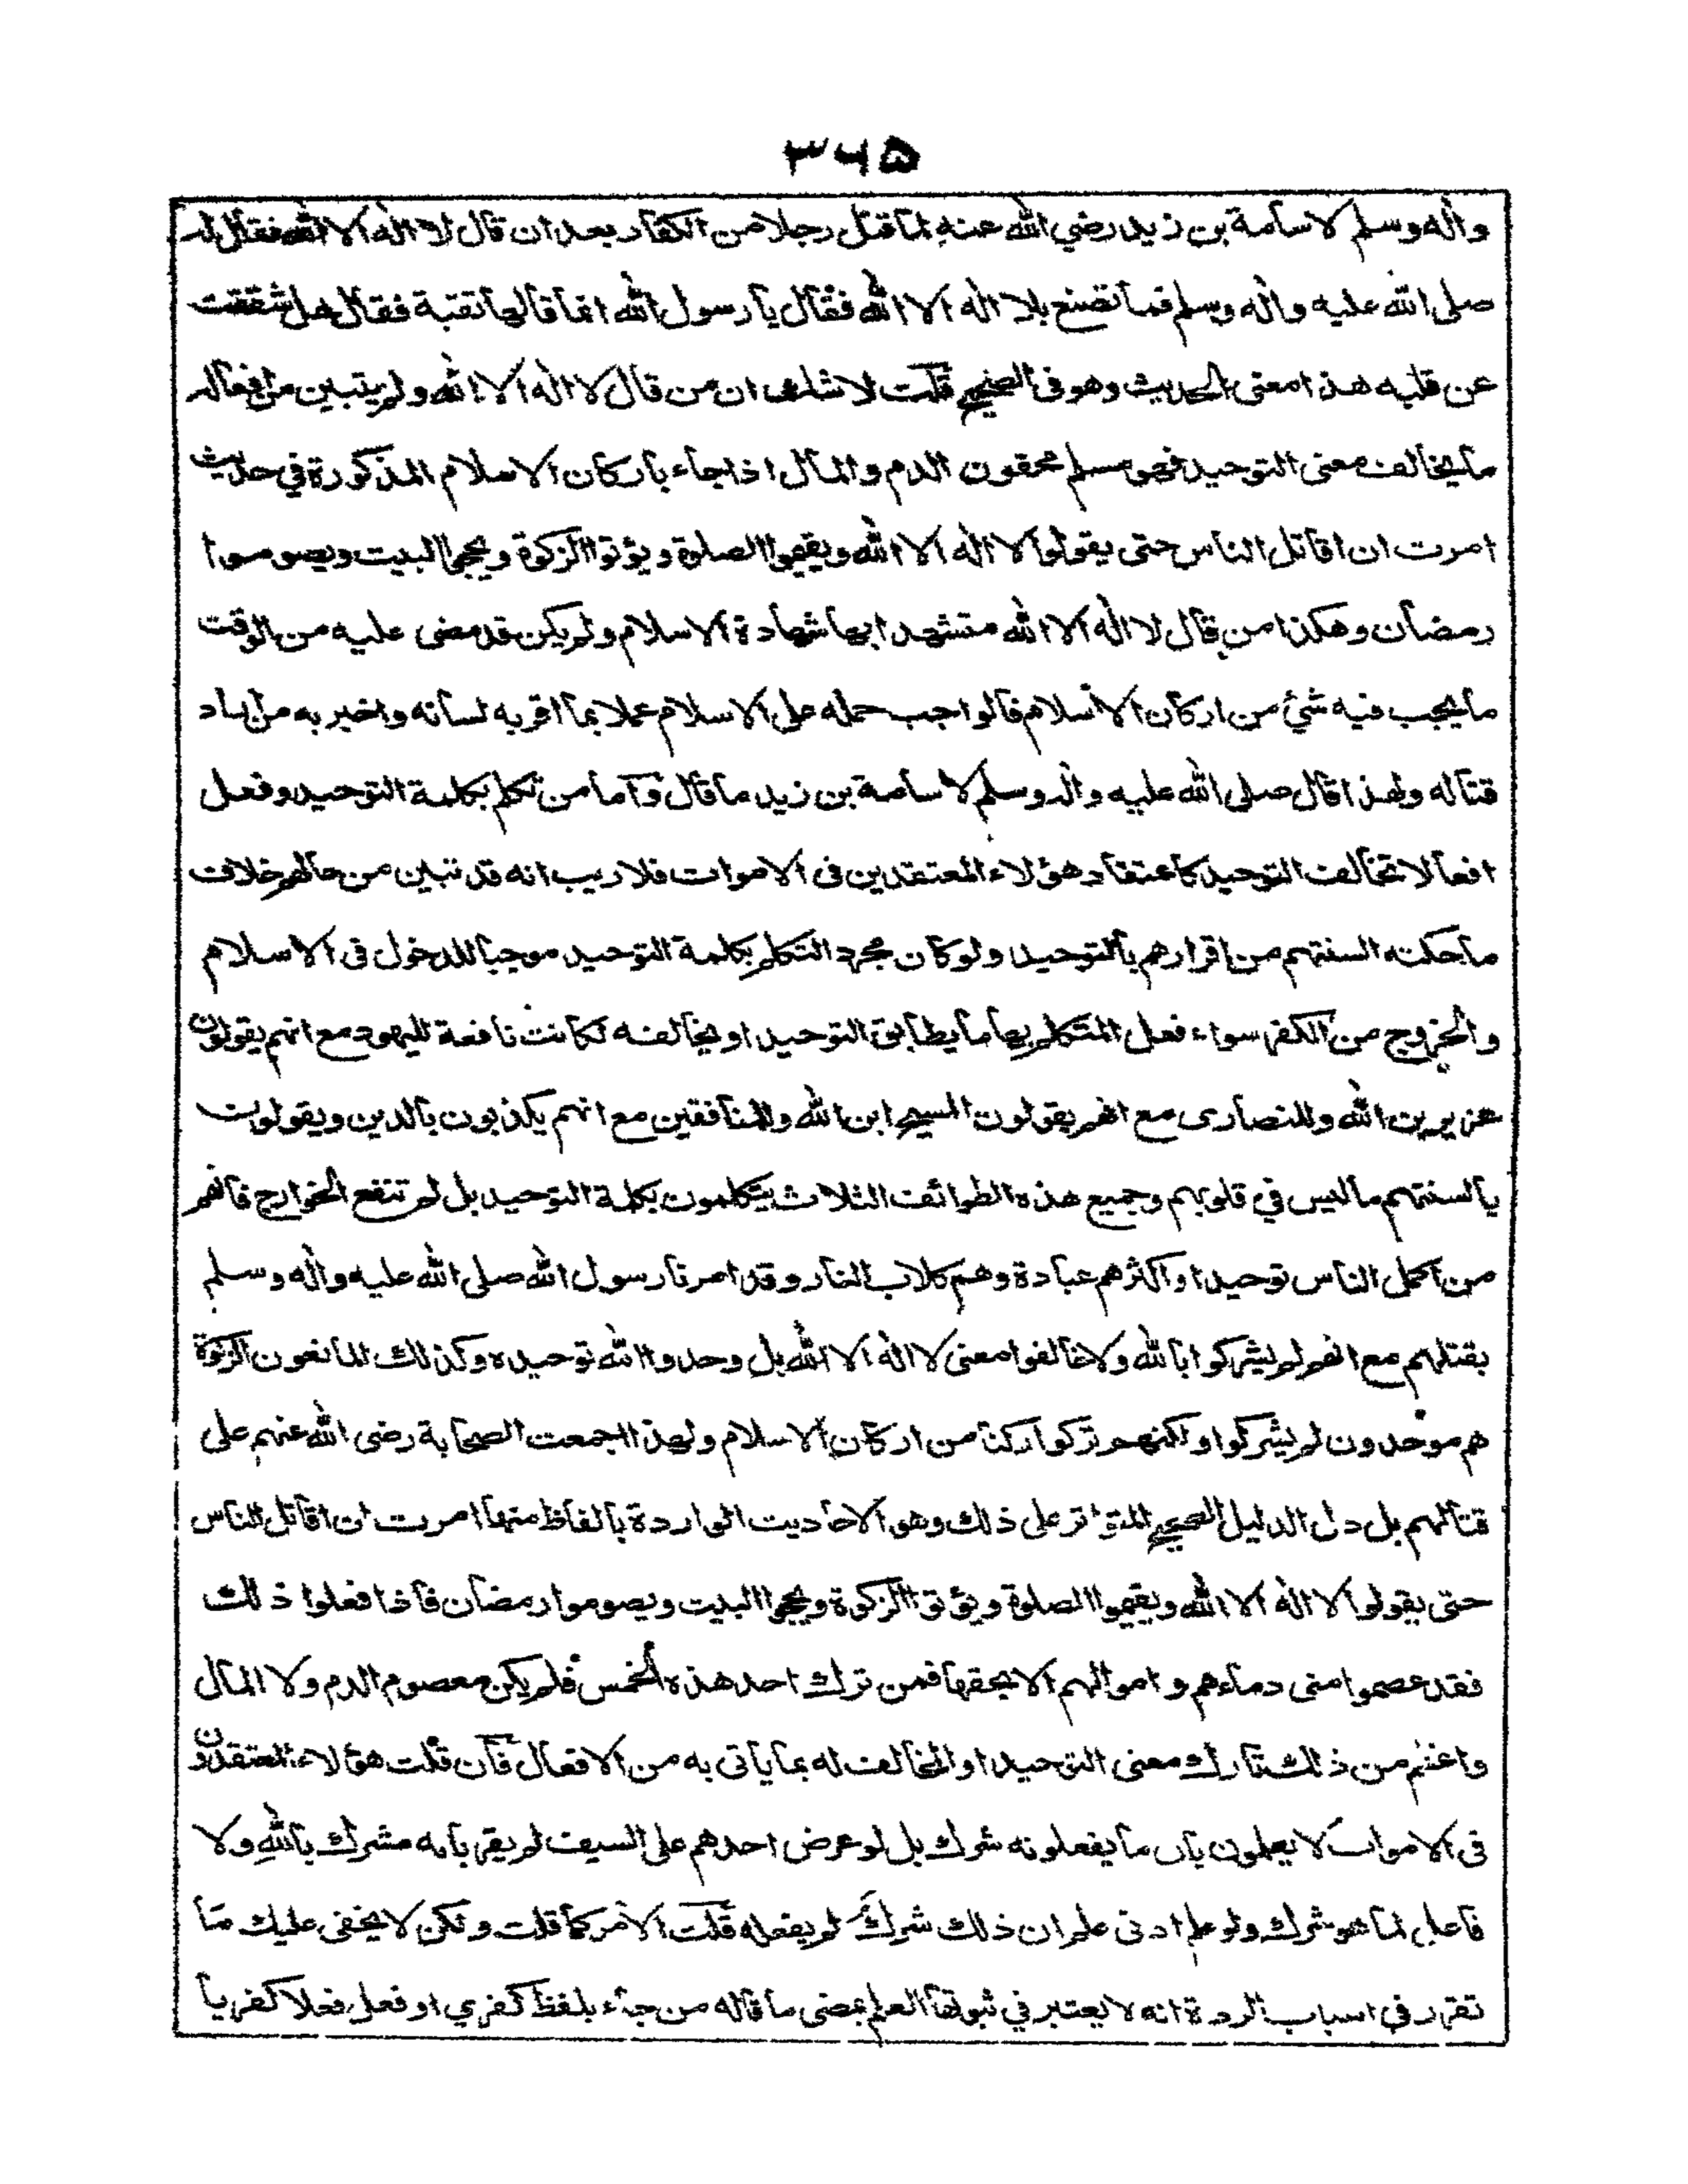 ۳۶۵
واله وسلم لاسامة بن زيد رضي الله عنه لما قتل رجلا من الكفار بعد ان قال لا اله الا الله فقال له
صلى الله عليه واله وسلم فما تصنع بلا اله الا الله فقال يا رسول الله انما قالها تقية فقال هل شققت
عن قلبه هذا معنى الحديث وهو فى الصحيح قلت لا شك ان من قال لا اله الا الله ولم يتبين من افعاله
ما يخالف معنى التوحيد فهو مسلم محقون الدم والمال اذا جاء باركان الاسلام المذكورة في حديث
امرت ان اقاتل الناس حتى يقولوا لا اله الا الله ويقيموا الصلوة ويؤتوا الزكوة ويحجوا البيت ويصوموا
رمضان وهكذا من قال لا اله الا الله متشهدا بها شهادة الاسلام ولم يكن قد مضى عليه من الوقت
ما يجب فيه شئ من اركان الاسلام فالواجب حمله على الاسلام عملا بما اقر به لسانه واخبر به من اراد
قتاله ولهذا قال صلى الله عليه واله وسلم لاسامة بن زيد ما قال واما من تكلم بكلمة التوحيد وفعل
افعالا تخالف التوحيد كاعتقاد هؤلاء المعتقدين فى الاموات فلا ريب انه قد تبين من حالهم خلاف
ما حكته السنتهم من اقرارهم بالتوحيد ولو كان مجرد التكلم بكلمة التوحيد موجبا للدخول فى الاسلام
والخروج من الكفر سواء فعل المتكلم بها ما يطابق التوحيد او يخالفه لكانت نافعة لليهود مع انهم يقولون
عزير بن الله وللنصارى مع انهم يقولون المسيح ابن الله وللمنافقين مع انهم يكذبون بالدين ويقولون
بالسنتهم ما ليس في قلوبهم وجميع هذه الطوائف الثلاث يتكلمون بكلمة التوحيد بل لم تنفع الخوارج فانهم
من اكمل الناس توحيدا واكثرهم عبادة وهم كلاب النار وقد امرنا رسول الله صلى الله عليه واله وسلم
بقتلهم مع انهم لم يشركوا بالله ولا خالفوا معنى لا اله الا الله بل وحدوا الله توحيده وكذلك المانعون الزكوة
هم موحدون لم يشركوا ولكنهم تركوا ركنا من اركان الاسلام ولهذا اجمعت الصحابة رضى الله عنهم على
قتالهم بل دل الدليل الصحيح المتواتر على ذلك وهو الاحاديث الواردة بالفاظ منها امرت ان اقاتل الناس
حتى يقولوا لا اله الا الله ويقيموا الصلوة ويؤتوا الزكوة ويحجوا البيت ويصوموا رمضان فاذا فعلوا ذلك
فقد عصموا منى دماءهم واموالهم الا بحقها فمن ترك احد هذه الخمس فلم يكن معصوم الدم ولا المال
واعظم من ذلك تارك معنى التوحيد او المخالف له بما ياتى به من الافعال فان قلت هؤلاء المعتقدون
فى الاموات لا يعلمون بان ما يفعلونه شرك بل لو عرض احدهم على السيف لم يقر بانه مشرك بالله ولا
فاعل لما هو شرك ولو علم ادنى علم ان ذلك شرك لم يفعله قلت الامر كما قلت ولكن لا يخفى عليك ما
تقرر في اسباب الردة انه لا يعتبر في ثبوتها العلم بمعنى ما قاله من جاء بلفظ كفري او فعل فعلا كفريا